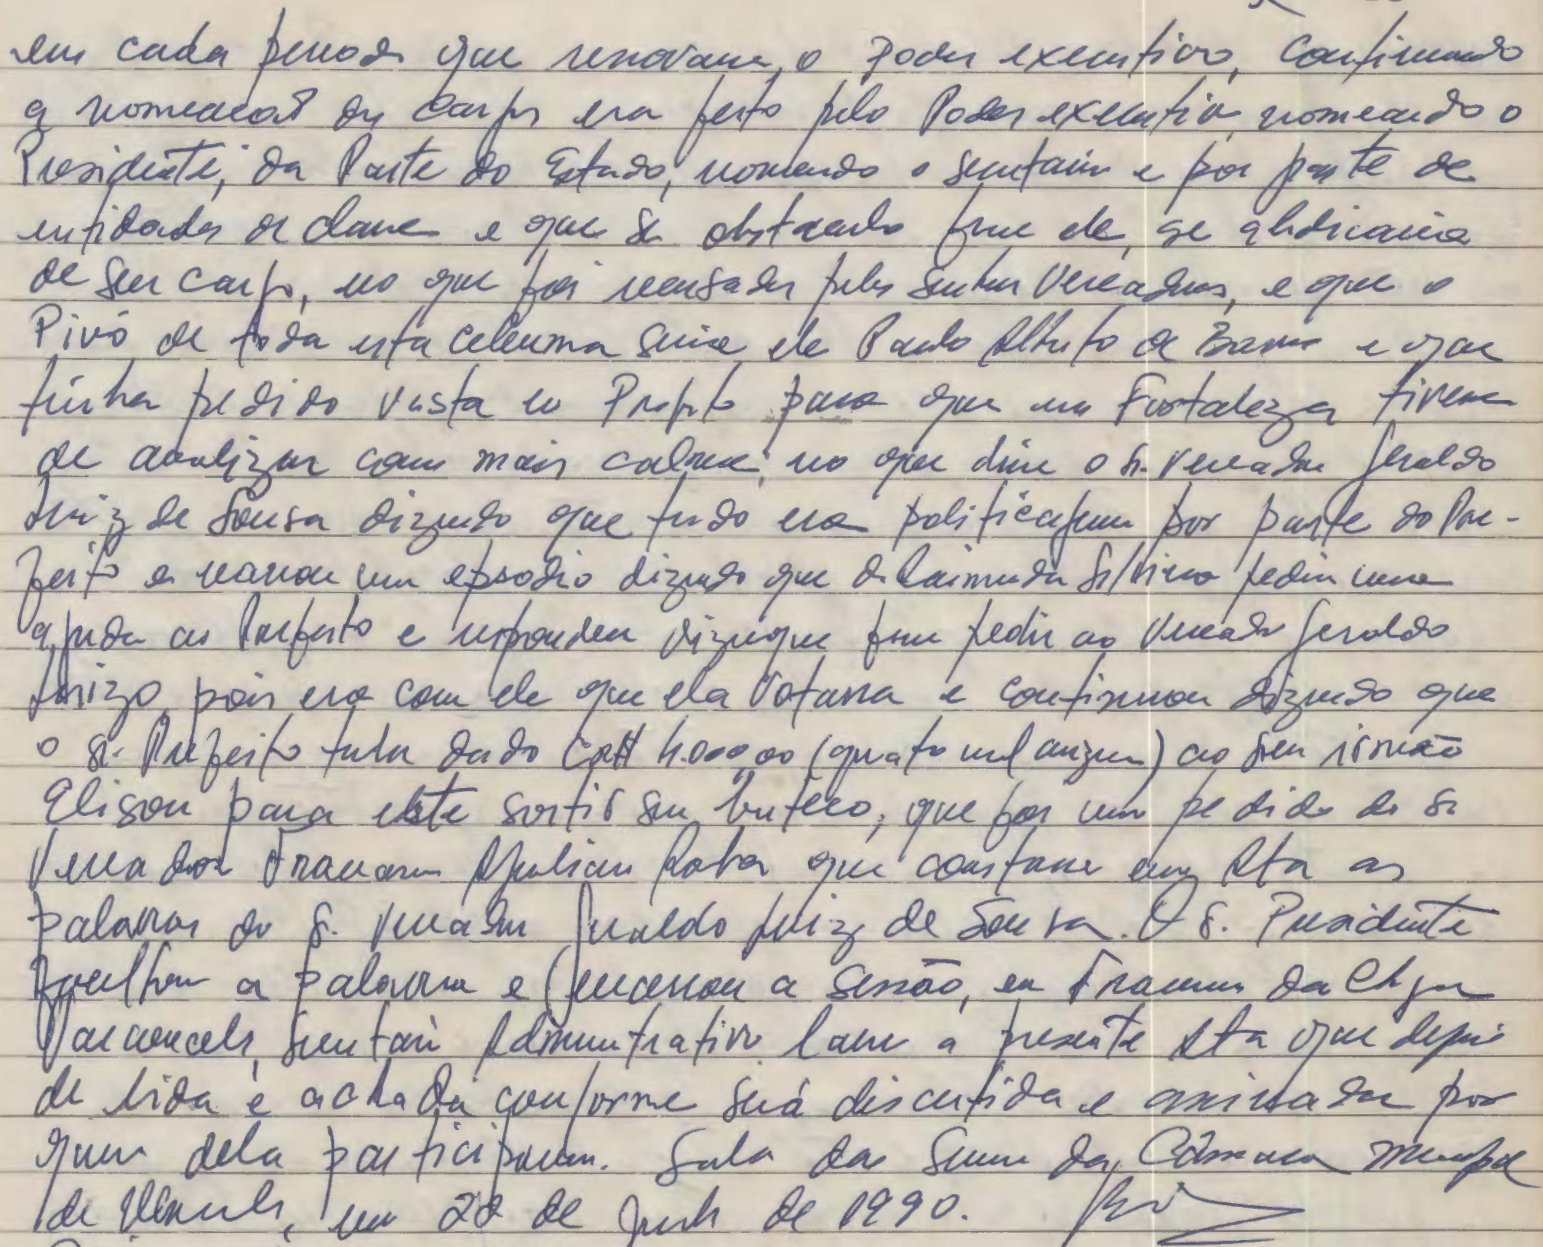 em cada periodo que renovava, o Poder executivo, continuando
a nomeação do Cargo era feito pelo Poder executivo, nomeando o
Presidente, da Parte do Estado, nomeando o secretario e por parte de
entidades de classe e que se obstaculo fosse ele, se abdicaria
de seu cargo, no que foi recusado pelos senhores Vereadores, e que o
Pivô de toda esta celeuma seria ele Paulo Alberto de Barros e que
tinha pedido vista ao Projeto para que em Fortaleza tivesse
de analizar com mais calma, no que disse o Sr. Vereador Geraldo
Luiz de Sousa dizendo que tudo era politicagem por parte do Pre-
feito e narrou um episodio dizendo que d. Raimunda pediu uma
ajuda ao Prefeito e respondeu que fosse pedir ao Vereador Geraldo
Luizo, pois era com ele que ela Votava e continuou dizendo que
o Sr. Prefeito tinha dado 4.000,00 (quatro mil cruzeiros) ao seu irmão
Elison para este sortir seu buteco, que foi um pedido do Sr.
Vereador que constasse em Ata as
palavras do Sr. Vereador Geraldo Luiz de Sousa. O Sr. Presidente
a palavra e encerrou a Sessão, eu
Vasconcelos, Secretario Administrativo lavrei a presente Ata que depois
de lida e achada conforme será discutida e assinada por
quem dela participaram. Sala das Sessões da Câmara Municipal
de em 22 de de 1990.